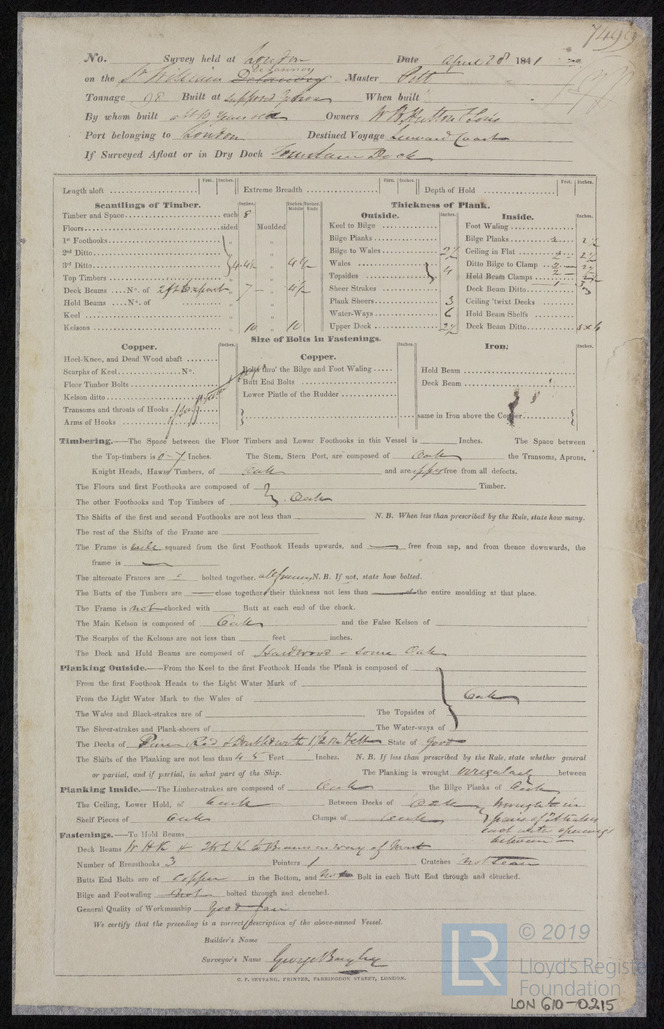 7499
No. Survey held at London Date April 28 1841
on the Sr William Master Pitt
Tonnage 98 Built at supposed When built
By whom built Owners W B Hutton & Sons
Port belonging to London Destined Voyage Leeward Coast
If Surveyed Afloat or in Dry Dock Dock
Feet. Inches. Feet. Inches. Feet. Inches.
Length aloft Extreme Breadth Depth of Hold
Scantlings of Timber. Thickness of Plank.
Inches. Inches Middle Inches Ends
Outside. Inside.
Timber and Space each 8
Floors sided Moulded
1st Foothooks
2nd Ditto
3rd Ditto 4½ 4½
Top Timbers
Deck Beams No. of 2ft 6 apart 7 4½
Hold Beams No. of
Keel
Kelsons 10 10
Keel to Bilge
Bilge Planks
Bilge to Wales 2½
Wales
Topsides 4
Sheer Strakes
Plank Sheers 3
Water-Ways 6
Upper Deck 2½
Foot Waling
Bilge Planks 2½
Ceiling in Flat 2½
Ditto Bilge to Clamp
Hold Beam Clamps
Deck Beam Ditto
Ceiling 'twixt Decks
Hold Beam Shelfs
Deck Beam Ditto 5 x 6
Size of Bolts in Fastenings.
Copper. Inches. Copper. Inches. Iron. Inches.
Heel-Knee, and Dead Wood abaft
Scarphs of Keel No.
Floor Timber Bolts
Kelson ditto
Transoms and throats of Hooks
Arms of Hooks
Bolts thro' the Bilge and Foot Waling
Butt End Bolts
Lower Pintle of the Rudder
Hold Beam
Deck Beam
same in Iron above the Copper
Timbering.—The Space between the Floor Timbers and Lower Foothooks in this Vessel is Inches. The Space between
the Top-timbers is 0-7 Inches. The Stem, Stern Post, are composed of Oak the Transoms, Aprons,
Knight Heads, Hawse Timbers, of Oak and are free from all defects.
The Floors and first Foothooks are composed of Timber.
The other Foothooks and Top Timbers of Oak
The Shifts of the first and second Foothooks are not less than N. B. When less than prescribed by the Rule, state how many.
The rest of the Shifts of the Frame are
The Frame is well squared from the first Foothook Heads upwards, and free from sap, and from thence downwards, the
frame is
The alternate Frames are bolted together. N. B. If not, state how bolted.
The Butts of the Timbers are close together their thickness not less than the entire moulding at that place.
The Frame is not chocked with Butt at each end of the chock.
The Main Kelson is composed of Oak and the False Kelson of
The Scarphs of the Kelsons are not less than feet inches.
The Deck and Hold Beams are composed of Hardwood & some Oak
Planking Outside.—From the Keel to the first Foothook Heads the Plank is composed of
From the first Foothook Heads to the Light Water Mark of
From the Light Water Mark to the Wales of Oak
The Wales and Black-strakes are of The Topsides of
The Sheer-strakes and Plank-sheers of The Water-ways of
The Decks of & Doubled with 1½ In State of Good
The Shifts of the Planking are not less than 4 5 Feet Inches. N. B. If less than prescribed by the Rule, state whether general
or partial, and if partial, in what part of the Ship. The Planking is wrought irregularly between
Planking Inside.—The Limber-strakes are composed of Oak the Bilge Planks of Oak
The Ceiling, Lower Hold, of Oak Between Decks of Oak wrought in
Shelf Pieces of Oak Clamps of Oak pairs of Strakes
openings
between
Fastenings.—To Hold Beams
Deck Beams Beams in way of Mast
Number of Breasthooks 3 Pointers 1 Crutches not seen
Butts End Bolts are of Copper in the Bottom, and not Bolt in each Butt End through and clenched.
Bilge and Footwaling not bolted through and clenched.
General Quality of Workmanship Good fair
We certify that the preceding is a correct description of the above-named Vessel.
Builder's Name
Surveyor's Name George Bayley
C. F. SEYFANG, PRINTER, FARRINGDON STREET, LONDON.
LR © 2019
Lloyd's Register
Foundation
LON 610-0215